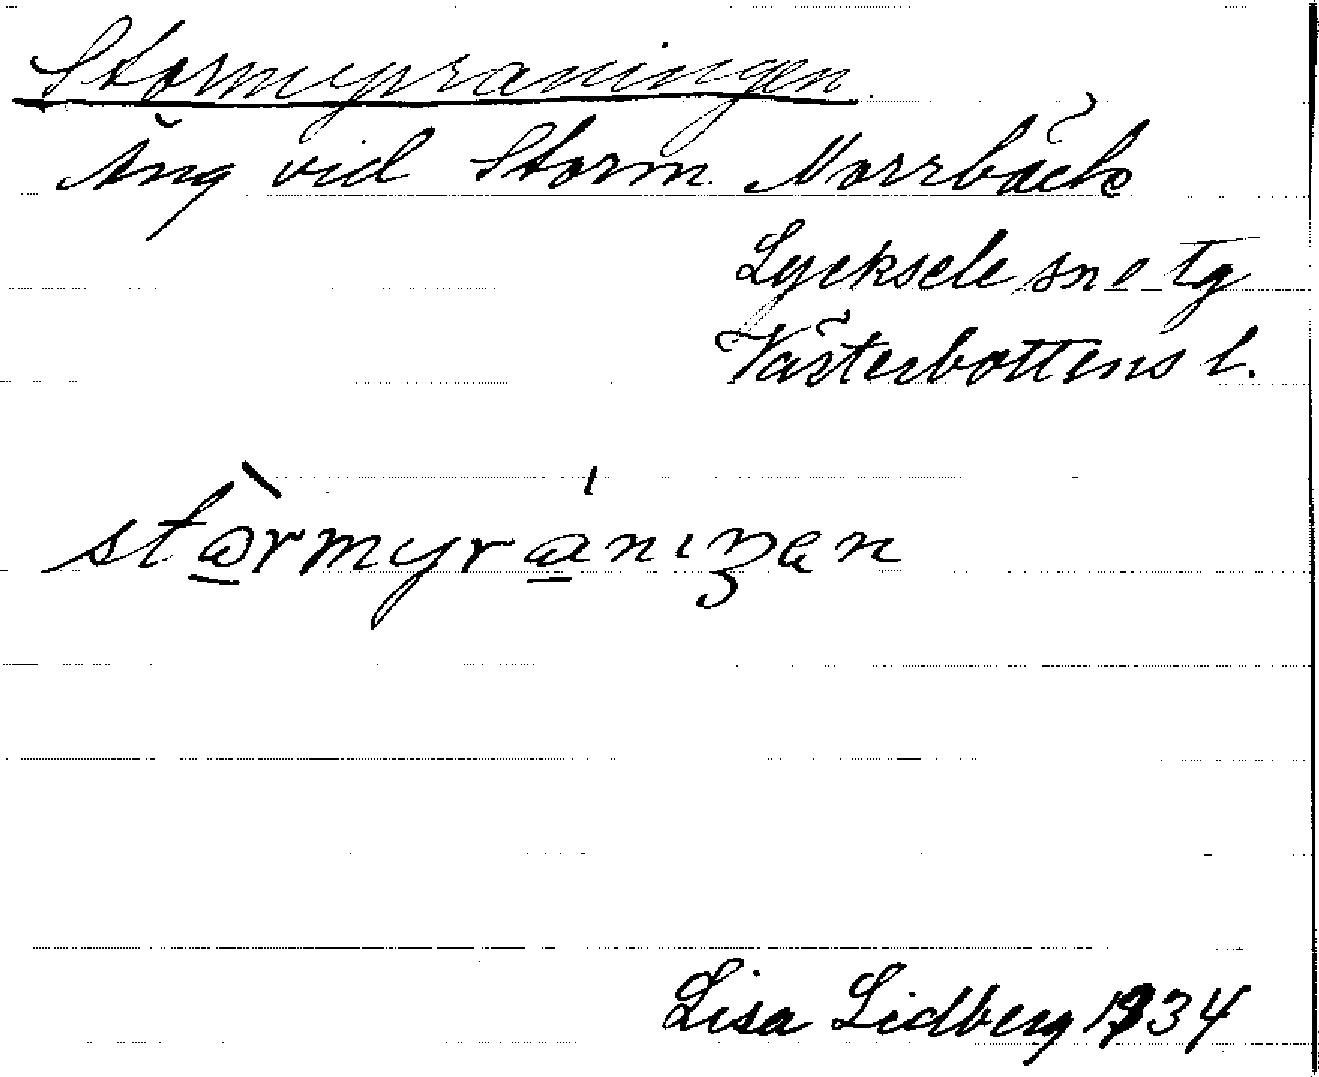 Stormyraningen
Äng vid Storm. Norrbäck
Lycksele sn o tg
Västerbottens l.
stårmyråniŋen
Lisa Lidberg 1934